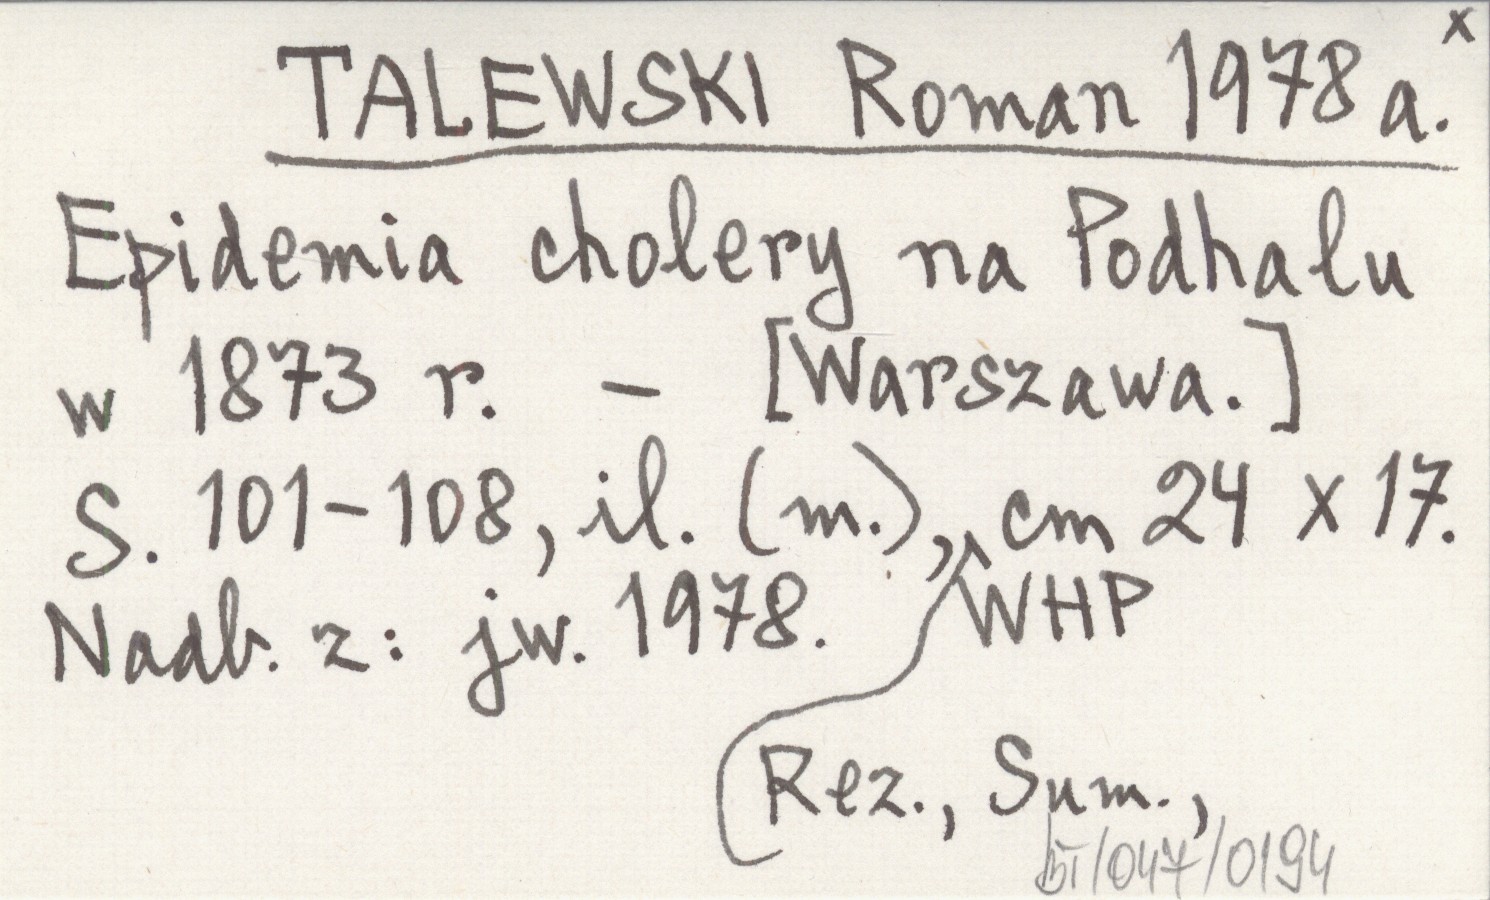 x
TALEWSKI Roman 1978 a.
Epidemia cholery na Podhalu
w 1873 r. – [Warszawa.]
S. 101–108, il. (m.), cm 24 x 17.
WHP
Nadb. z: jw. 1978.
Rez., Sum.,
/047/0194